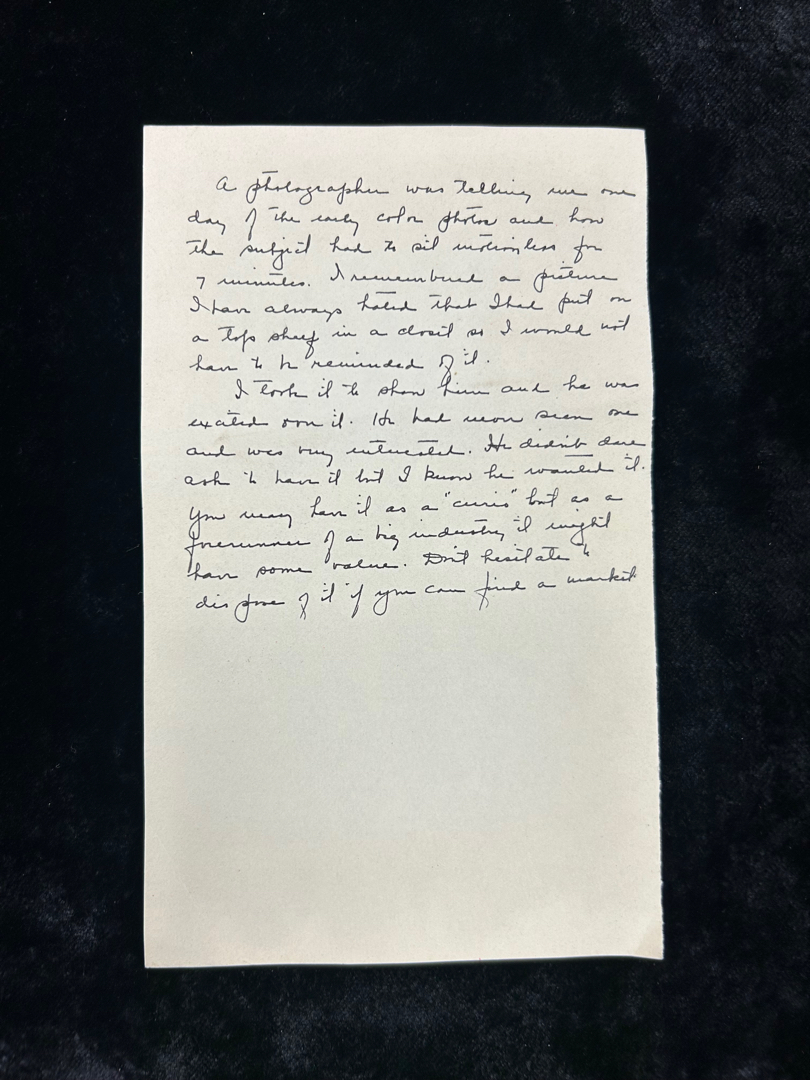 A photographer was telling me one
day of the early color photos and how
the subject had to sit motionless for
7 minutes. I remembered a picture
I have always hated that I had put on
a top shelf in a closet so I would not
have to be reminded of it.
I took it to show him and he was
excited over it. He had never seen one
and was very interested. He didn't dare
ask to have it but I know he wanted it.
You may have it as a "curio" but as a
forerunner of a big industry it might
have some value. Don't hesitate to
dispose of it if you can find a market.